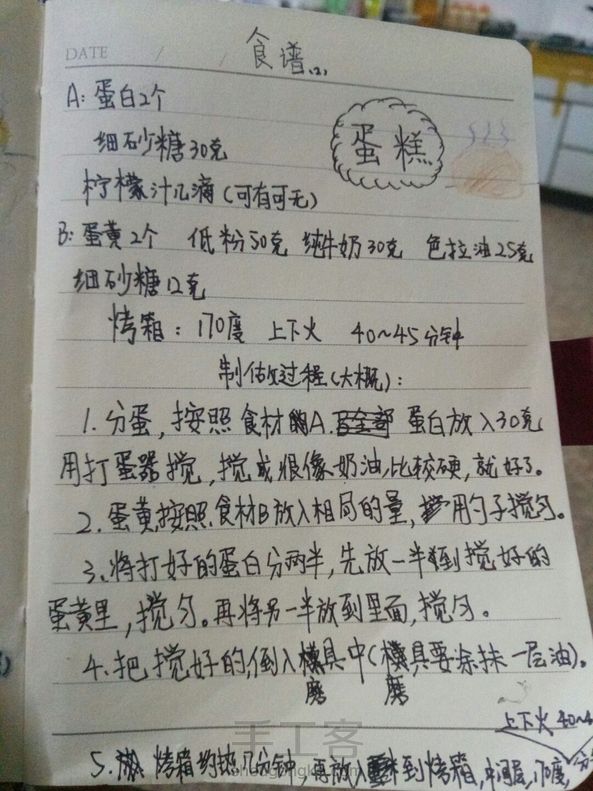 DATE / /
食谱
A: 蛋白2个
蛋糕
细砂糖30克
柠檬汁几滴(可有可无)
B: 蛋黄2个 低粉50克 纯牛奶30克 色拉油25克
细砂糖12克
烤箱: 170度 上下火 40~45分钟
制做过程(大概):
1. 分蛋, 按照食材的A. 蛋白放入30克
用打蛋器搅, 搅成很像奶油, 比较硬, 就好了。
2. 蛋黄按照食材B放入相同的量, 用勺子搅匀。
3. 将打好的蛋白分两半, 先放一半到搅好的
蛋黄里, 搅匀。再将另一半放到里面, 搅匀。
4. 把搅好的, 倒入模具中(模具要涂抹一层油)。
磨 磨
上下火 40~4
5. 烤箱约热几分钟, 再放入到烤箱, 中间层, 170度,
手工客